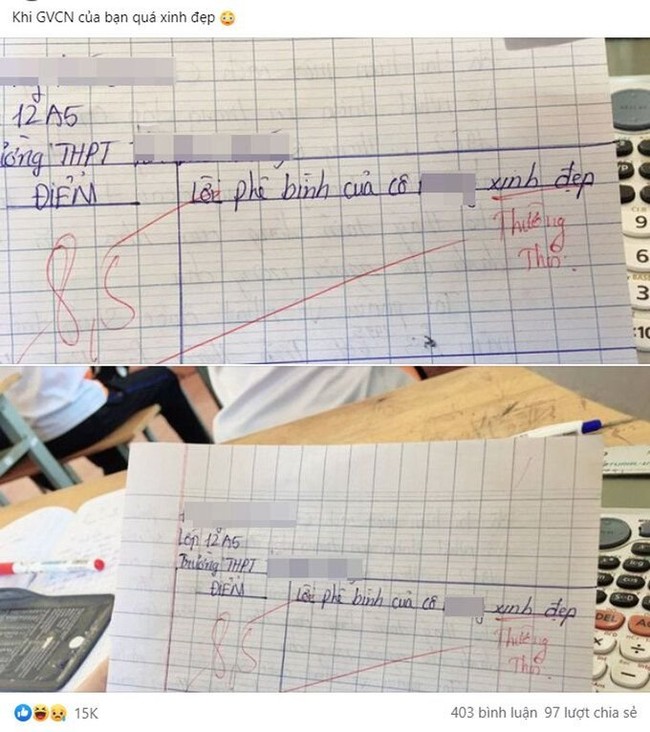 Khi GVCN của bạn quá xinh đẹp
12A5
ường THPT
ĐIỂM
Lời phê bình của cô xinh đẹp
8,5
Thường
Thôi.
Lớp 12A5
Trường THPT
ĐIỂM
Lời phê bình của cô xinh đẹp
8,5
Thường
Thôi.
9
6
3
DEL
15K
403 bình luận 97 lượt chia sẻ